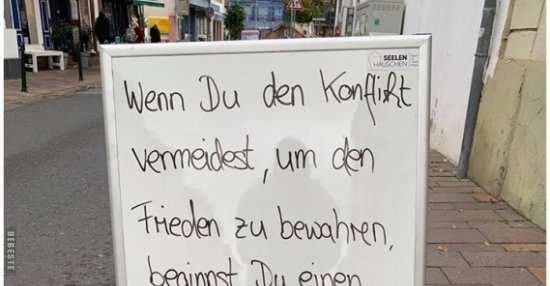 SEELEN
HÄUSCHEN
Wenn Du den Konflikt
vermeidest, um den
Frieden zu bewahren,
beginnst Du einen
DEBESTE